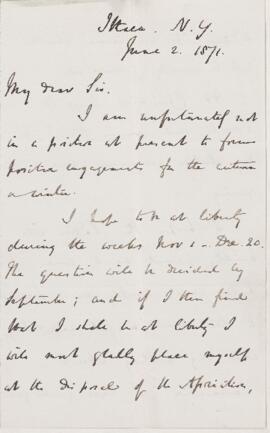 Ithaca. N.Y.
June 2. 1871.
My dear Sir.
I am unfortunately not
in a position at present to form
positive engagements for the autumn
or winter.
I hope to be at liberty
during the weeks Nov 1 - Dec. 20.
The question will be decided by
September; and if I then find
that I shall be at liberty I
will most gladly place myself
at the disposal of the Association,